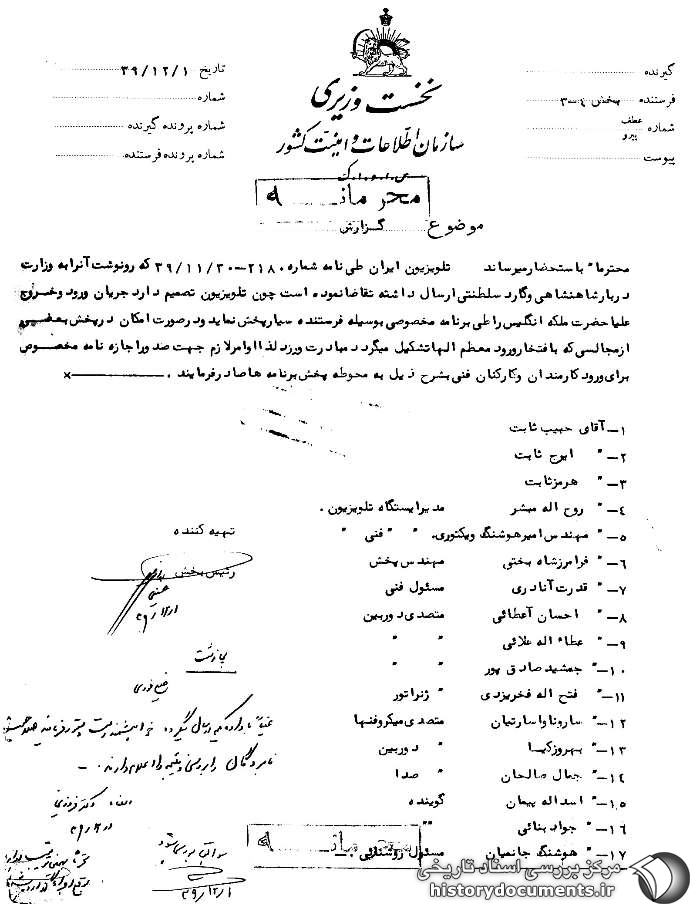 گیرنده
فرستنده بخش ۴-۳۰
شماره عطف پیرو
پیوست
نخست وزیری
سازمان اطلاعات و امنیت کشور
س.ا.و.ا.ک
تاریخ ۳۹/۱۲/۱
شماره
شماره پرونده گیرنده
شماره پرونده فرستنده
محرمانه
موضوع گزارش
محترما" باستحضار میرساند تلویزیون ایران طی نامه شماره ۲۱۸۰-۳۹/۱۱/۳۰ که رونوشت آنرا به وزارت
دربار شاهنشاهی و گارد سلطنتی ارسال داشته تقاضا نموده است چون تلویزیون تصمیم دارد جریان ورود و خروج
علیاحضرت ملکه انگلیس را طی برنامه مخصوصی بوسیله فرستنده سیار پخش نماید و در صورت امکان در پخش بعضی
از مجالسی که با افتخار ورود معظم الها تشکیل میگردد مبادرت ورزد لذا اوامر لازم جهت صدور اجازه نامه مخصوص
برای ورود کارمندان و کارکنان فنی بشرح ذیل به محوطه پخش برنامه ها صادر فرمایند .
۱- آقای حبیب ثابت
۲- " ایرج ثابت
۳- " هرمز ثابت
۴- " روح اله مبشر مدیر ایستگاه تلویزیون .
۵- " مهندس امیرهوشنگ ویکتوری. " " فنی "
۶- " فرامرز شاه بختی مهندس پخش
۷- " قدرت آنادری مسئول فنی
۸- " احسان آعطائی متصدی دوربین
۹- " عطاء اله علائی " "
۱۰- " جمشید صادق پور " "
۱۱- " فتح اله فخریزدی " ژنراتور
۱۲- " سارونا واسارتیان متصدی میکروفنها
۱۳- " بهروز کیا " دوربین
۱۴- " جمال صالحان " صدا
۱۵- " اسداله پیمان گوینده
۱۶- " جواد بنائی "
۱۷- " هوشنگ جانمیان مسئول روشنائی
تهیه کننده
رئیس بخش
محرمانه
مرکز بررسی اسناد تاریخی
historydocuments.ir